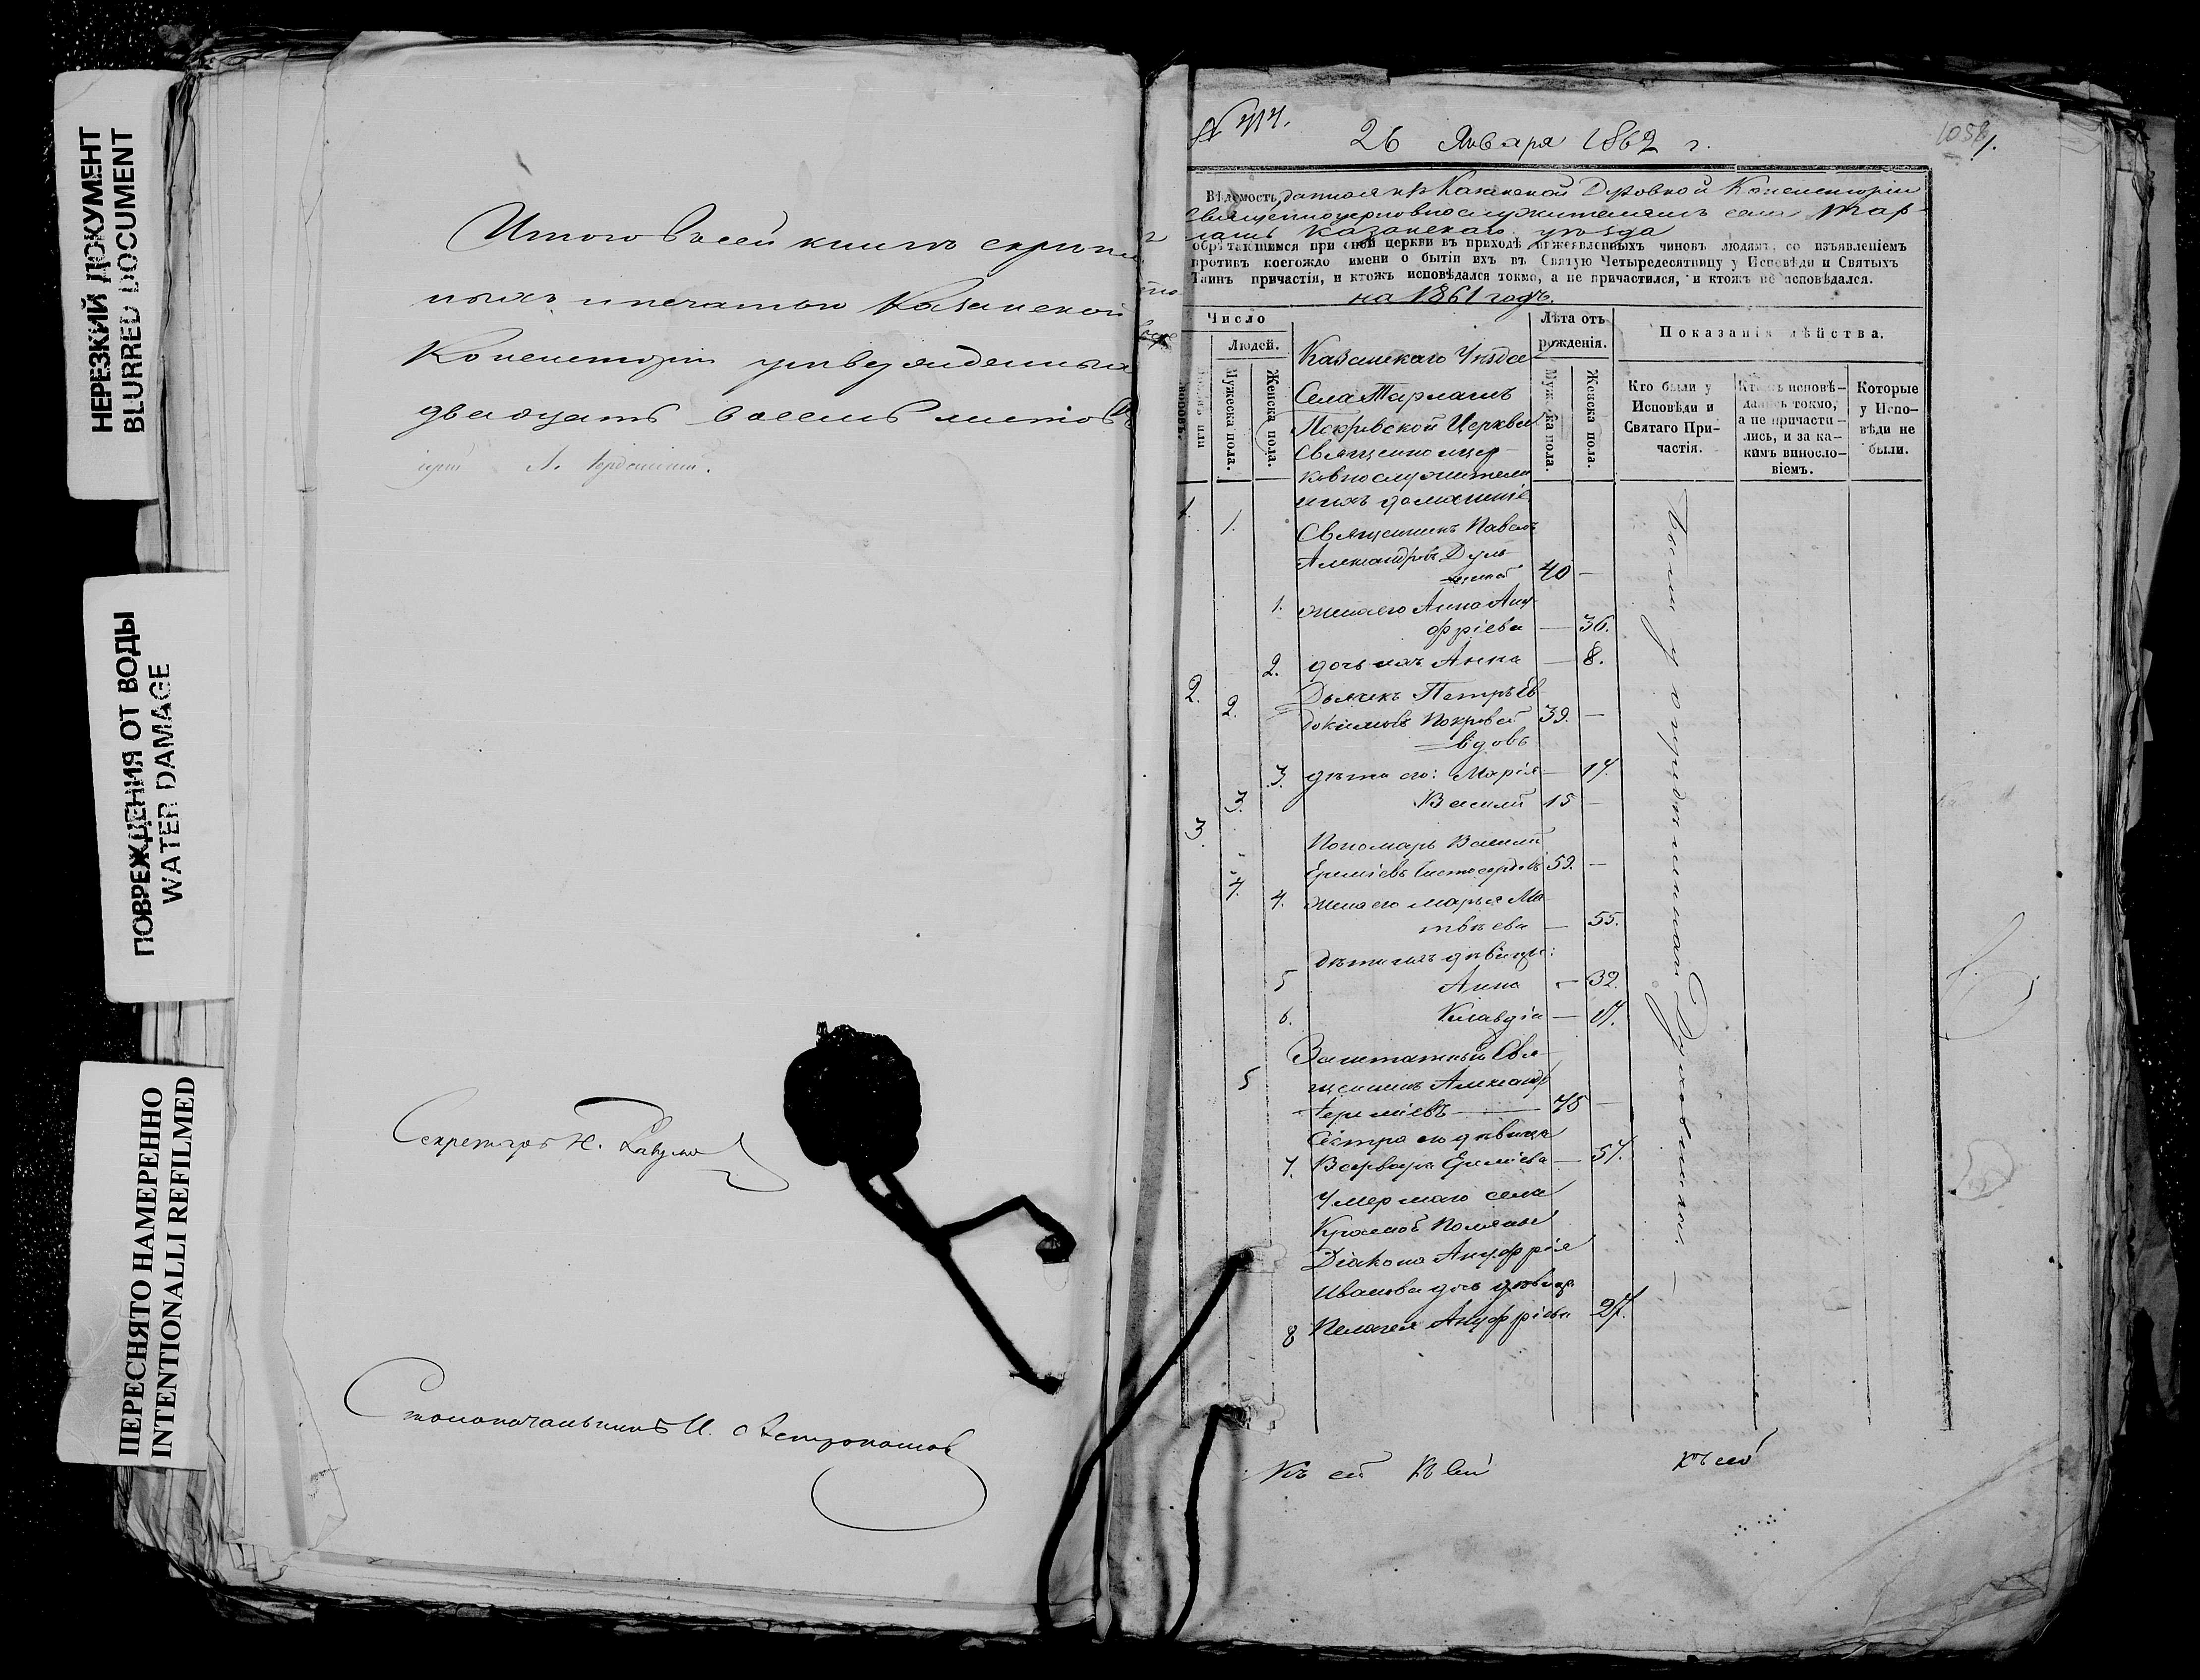 НЕРЕЗКИЙ ДОКУМЕНТ
BLURRED DOCUMENT
ПОВРЕЖДЕНИЯ ОТ ВОДЫ
WATER DAMAGE
ПЕРЕСНЯТО НАМЕРЕННО
INTENTIONALLI REFILMED
Итого всей книгѣ скрѣпле
ныхъ и печатью Казанской
Консисторіи утвержденныхъ
двадцать восемь листовъ
Секретарь Н.
Столоначальникъ И.
26 Января 1862 г.
1058
Вѣдомость, данная изъ Казанской Духовной Консисторіи
Священноцерковнослужителямъ села Тар
лашъ Казанскаго уѣзда
обрѣтающимся при оной церкви въ приходѣ нижеявленныхъ чиновъ людямъ, со изъявленіемъ
противъ коегождо имени о бытіи ихъ въ Святую Четыредесятницу у Исповѣди и Святыхъ
Таинъ причастія, и ктожъ исповѣдался токмо, а не причастился, и ктожъ не исповѣдался.
на 1861 годъ.
Число
Людей.
Мужеска пола.
Женска пола.
Лѣта отъ рожденія.
Мужеска пола.
Женска пола.
Показанія дѣйства.
Кто были у Исповѣди и Святаго Причастія.
Кто исповѣдались токмо, а не причастились, и за какимъ винословіемъ.
Которые у Исповѣди не были.
Казанскаго Уѣзда
Села Тарлашъ
Покровской Церкви
Священноцер
ковнослужители
и ихъ домашніе
1. 1. Священникъ Павелъ
Александровъ
40 —
1. жена его Анна Ану
фріева — 36.
2. дочь ихъ Анна — 8.
2. 2. Дьячекъ Петръ Ев
докимовъ Покровскій 39. —
вдовъ
3. дѣти его: Марія — 17.
3. Василій 15 —
3. Пономарь Василій
4. Ереміевъ 59. —
4. жена его Марья Ма
твѣева — 55.
дѣти ихъ дѣвицы:
5 Анна — 32.
6. Клавдія — 17.
Заштатный Свя
5 щенникъ Александръ
Ереміевъ — 75 —
Сестра его дѣвица
7. Варвара Ереміева — 57.
Умершаго села
Діакона Ануфрія
Иванова дочь дѣвица
8 Пелагея Ануфріева 27.
Были у исповѣди
Къ сей Къ сей Къ сей